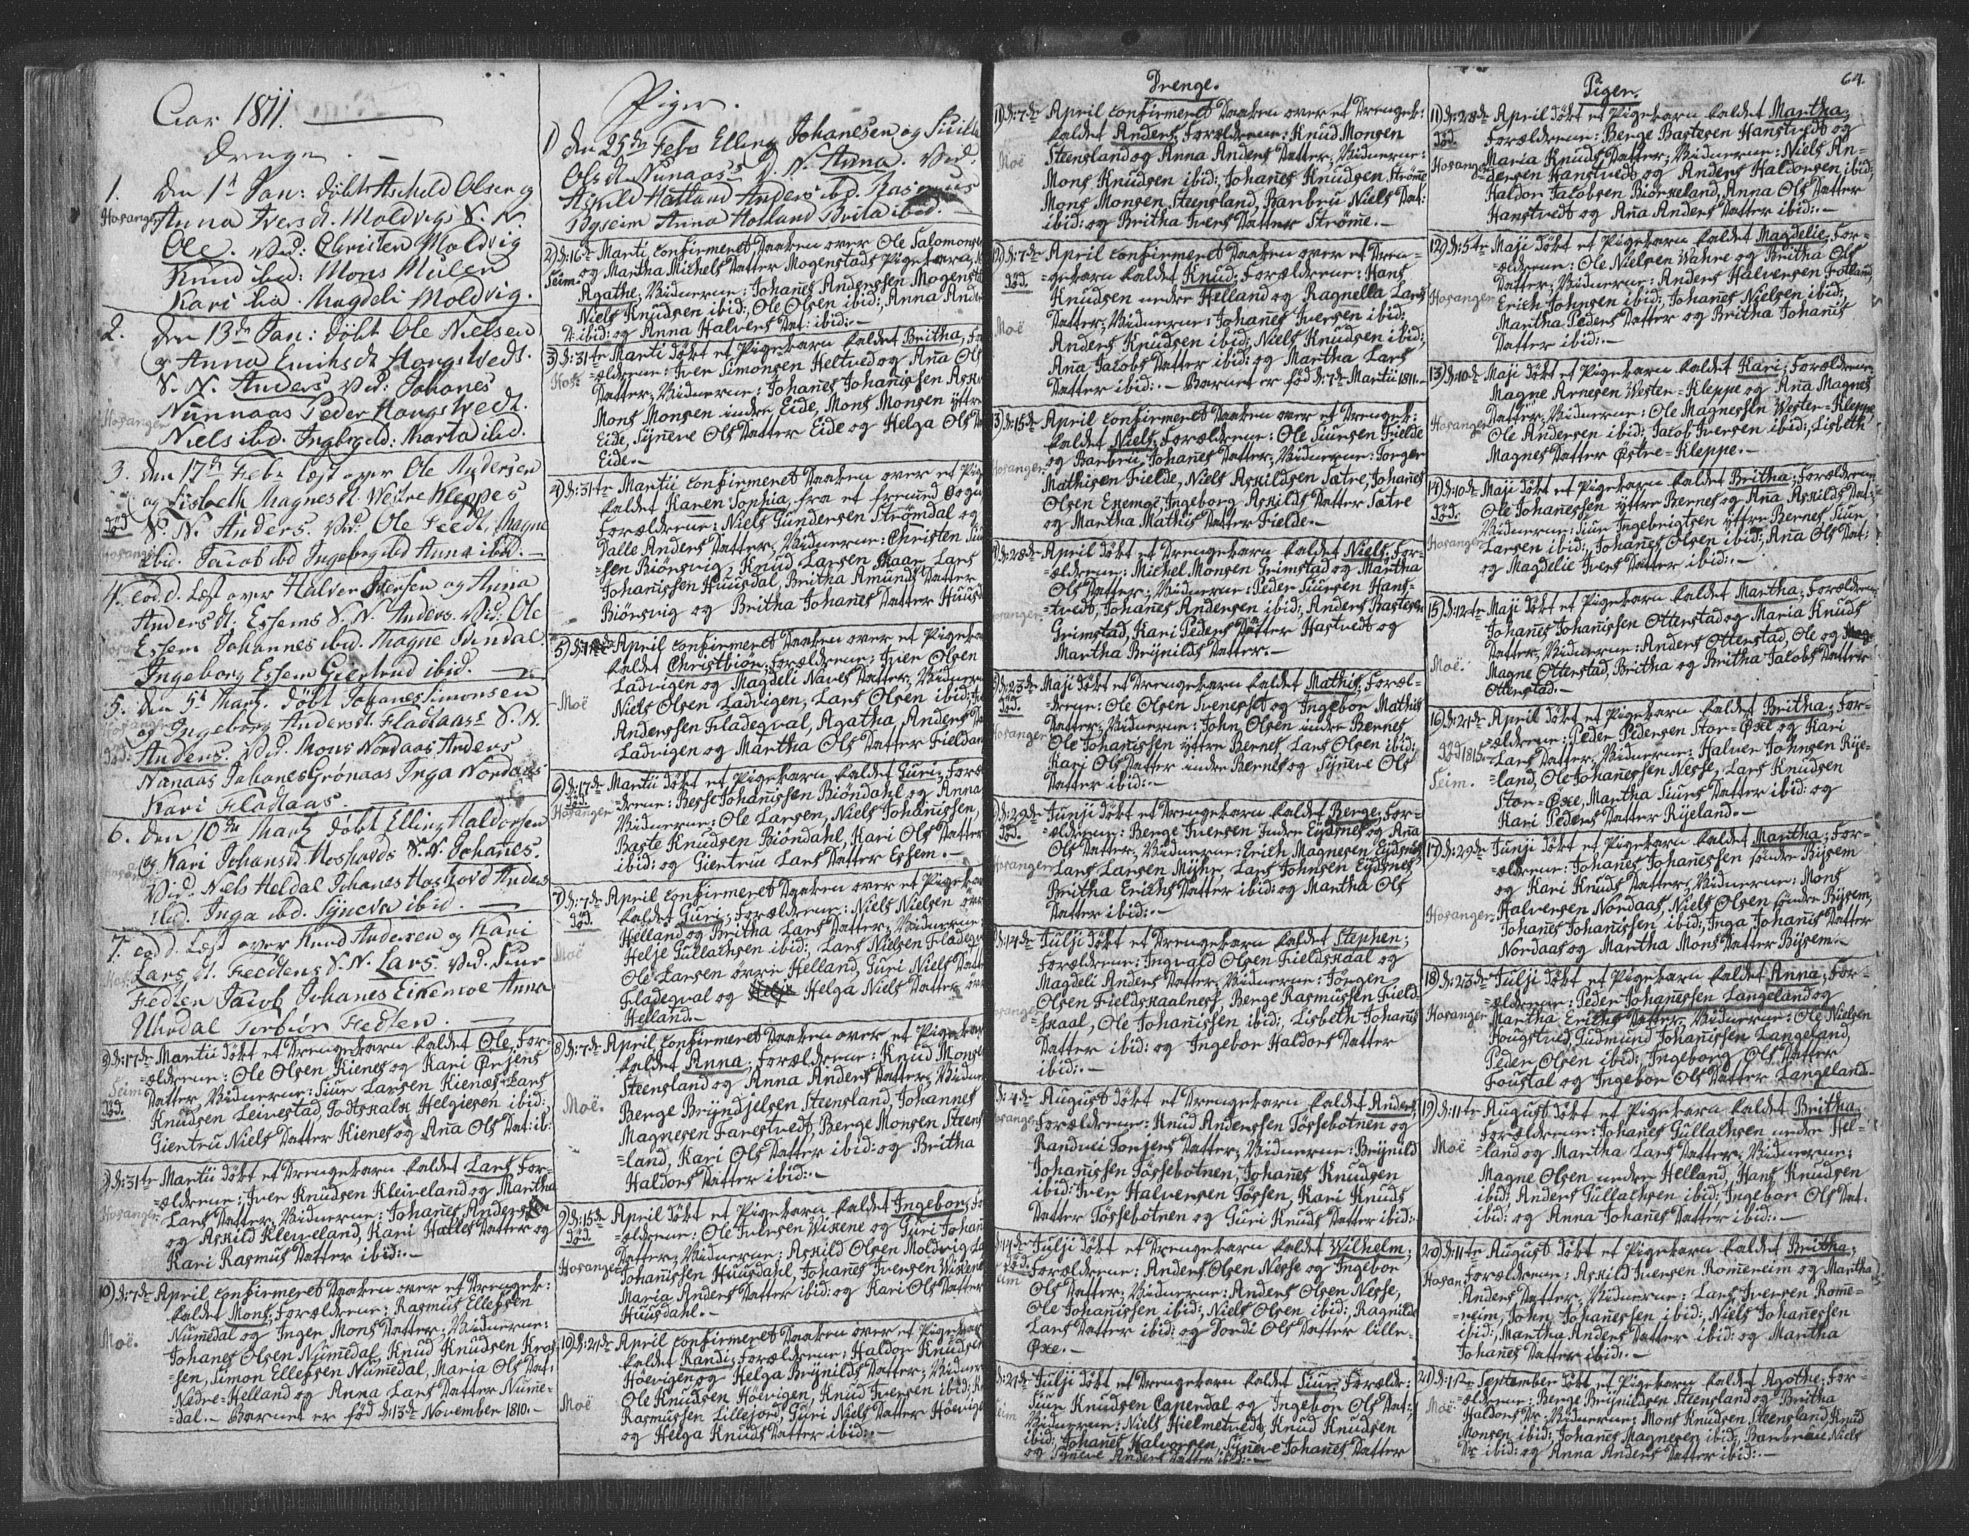 Aar 1811.
Drenge.
1. Den 1t Jan: döbt Ascheld Olsen og
Hosanger Anna Iversd. Moldvigs S. N.
Ole. Vid: Christen Moldvig
Knud ibid: Mons Mulen
Kari ibid. Magdeli Moldvig.
2. Den 13de Jan: döbt Ole Nielsen
og Anna Erichsdt Hougstvedt.
S. N. Anders Vid: Johanes
Nunnaas Peder Hougstvedt.
Hosanger Niels ibd. Ingbg ibd: Marta ibd.
3. Den 17de Feb: læst over Ole Andersen
og Lisbeth Magnesdt. Westre Kleppes
död S. N. Anders. Vid: Ole Magne
Hosanger ibid. Jacob ibd Ingeborg ibd Anna ibid.
4. eod d. Læst over Halvor Iversen og Anna
Andersdt. Essems S. N. Anders. Vid: Ole
Essem Johannes ibid. Magne
Ingeborg Essem Giertrud ibid.
5. Den 5t Martz. Döbt Johanes Simonsen
og Ingeborg Andersdt. Fladaas S. N.
död: Anders. Vid: Mons Nordaas Anders
Nanaas Johanes Grönaas Inga Nordaas
Kari Fladaas.
6. Den 10de Martz döbt Elling Haldorsen
og Kari Johansd. S. N. Johanes.
Vid: Niels Heldal Johanes Anders
ibid. Inga ibd. Syneva ibid.
7. eod d. Læst over Knud Andersen og Kari
Lars dt. S. N. Lars. Vid:
Jacob Johanes Eikemoe Anna
8) d: 17de Martii döbt et Drengebarn kaldet Ole, For-
=ældrene: Ole Olsen Kienes og Kari Ørjens
Seim Datter, Vidnerne: Siur Larsen Kienæs Lars
död. Knudsen Leivestad, Helgiesen ibid:
Gientru Niels Datter Kienes og Ana Ols Dat: ib:
9) d: 31te Martii döbt et Drengebarn kaldet Lars For-
=ældrene: Iver Knudsen Kleiveland og Martha
Hosanger Lars Datter, Vidnerne: Johanes Andersen
og Askild Kleiveland, Kari Halles Datter og
Kari Rasmus Datter ibid:-
10) d: 7de April Confirmeret Daaben over et Drengeb:
kaldet Mons; Forældrene: Rasmus Ellefsen
Numedal og Inger Mons Datter; Vidnerne:
Moë. Johanes Olsen Numedal, Knud Knudsen
=sen, Simon Ellefsen Numedal, Maria Ols Dat:
Nedre-Helland og Anna Lars Datter Nume=
dal. Barnet er född d: 13de November 1810.-
Piger.
1) Den 25de Feb: Elling Johanesen og
Olsdt Nunaas D. N. Anna. Vid:
Askild Hatland Anders ibd. Rasmus
Byseim Anna Hotland Brita ibid.
2) d: 10de Marti Confirmeret Daaben over Ole Salomons
Seim. og Martha Michels Datter Mogenstads Pigebarn
Agathe; Vidnerne: Johanes Anderssen Mogenst
Niels Knudsen ibid:, Ole Olsen ibid:, Anna Ande
D: ibid: og Anna Halvers Dat: ibid:-
3) d: 31te Marti döbt et Pigebarn kaldet Britha, For
Hos: =ældrene: Iver Simonsen Heltved og Ana Ols
Datter, Vidnerne: Johanes Johanissen
Mons Monsen indre Eide, Mons Monsen yttre
Eide, Syneve Ols Datter Eide og Helga Ols Da
Eide.-
4) d: 31te Martii Confirmeret Daaben over et Pig
kaldet Karen Sophia, fra et fremed Sogn
Forældrene: Niels Gundersen Strömdal og
Dalle Anders Datter, Vidnerne: Christen
=sen Biörsvig, Knud Larsen Lars
Johanissen Huusdal, Britha Amunds Datter
Biörsvig og Britha Johanes Datter Huusd
5) d: April Confirmeret Daaben over et Pigeba
kaldet Christbiör; Forældrene: Iver Olsen
Moë Ladvigen og Magdeli Naves Datter, Vidner
Niels Olsen Ladvigen, Lars Olsen ibid:
Anderssen Fladegval, Agatha, Anders Da
Ladvigen og Martha Ols Datter Fieldan
6) d: 17de Martii döbt et Pigebarn kaldet Guri, Foræl
död. drene: Besse Johanissen Biöndahl og Anna
Hosanger Vidnerne: Ole Larsen, Niels Johanissen,
Baste Knudsen Biöndahl, Kari Ols Datter
ibid: og Gientru Lars Datter Essem.-
7) d: 7de April Confirmeret Daaben over et Pigeba
död. kaldet Guri; Forældrene: Niels Nielsen over
Helland og Britha Lars Datter, Vidnerne:
Moë Helje Gullachsen ibid:, Lars Nielsen Fladegv
Ole Larsen övre Helland, Guri Niels Datt
Fladegval og Helga Niels Datter over
Helland.-
8) d: 7de April Confirmeret Daaben over et Pigebar
kaldet Anna; Forældrene: Knud Monse
Steensland og Anna Anders Datter, Vidner
Moë. Berge Bryndjelsen Steensland, Johannes
Magnesen Farestvedt, Berge Monsen Steens
=land, Kari Ols Datter ibid: og Britha
Haldors Datter ibid:-
9) d: 15de April döbt et Pigebarn kaldet Ingebor; Fo
död. =ældrene: Ole Iversen Wikene og Guri Johan
Hosanger Datter, Vidnerne: Askild Olsen Moldvig
Johanissen Huusdahl, Johanes Iversen Wikene
Maria Anders Datter ibid: og Kari Ols Datter
Huusdahl.-
10) d: 21de April Confirmeret Daaben over et Pigebar
kaldet Randi; Forældrene: Haldor Knudsen
Höevigen og Helga Brynilds Datter; Vidner
Moë Ole Knudsen Höevigen, Knud Iversen ibid:
Rasmussen Lillejord, Guri Niels Datter Höevige
og Helga Knuds Datter ibid:-
Drenge.
11) d: 7de April Confirmeret Daaben over et Drengeb:
kaldet Anders, Forældrene: Knud Monsen
Moë Steensland og Anna Anders Datter; Vidnerne:
Mons Knudsen ibid:, Johanes Knudsen Ströme
Mons Monsen, Steensland, Barbru Niels Dat:
ibid: og Britha Ivers Datter Ströme.-
12) d: 7de April Confirmeret Daaben over et Dren=
död. =gebarn kaldet Knud; Forældrene: Hans
Knudsen nedre Helland og Ragnella Lars
Moë Datter; Vidnerne: Johanes Iversen ibid:
Anders Knudsen ibid:, Niels Knudsen ibid:,
Ana Jacobs Datter ibid: og Martha Lars
Datter ibid:- Barnet er född d: 7de Martii 1811.-
13) d: 15de April Confirmeret Daaben over et Drengeb:
kaldet Niels; Forældrene: Ole Siursen Fielde
Hosanger og Barbru Johanes Datter; Vidnerne: Torger
Mathisen Fielde, Niels Askildsen Sætre, Johanes
Olsen Exemoe, Ingeborg Askilds Datter Sætre
og Martha Mathis Datter Fielde.-
d: 28de April döbt et Drengebarn kaldet Niels; For-
=ældrene: Michel Monsen Grimstad og Martha
Hosanger Ols Datter; Vidnerne: Peder Siursen Hans-
=tvedt, Johanes Andersen ibid:, Anders Bastesen
Grimstad, Kari Peders Datter Hastvedt og
Martha Brynilds Datter.-
d: 23de Maji döbt et Drengebarn kaldet Mathis; Foræl-
död. =drene: Ole Olsen Svenesset og Ingebor Mathis
Hosanger Datter; Vidnerne: John Olsen indre Bernes
Ole Johanissen yttre Bernes, Lars Olsen ibid:
Kari Ols Datter indre Bernes og Syneve Ols
Datter ibid:-
d: 29de Junji döbt et Drengebarn kaldet Berge; For-
död. =ældrene: Berge Iversen Indre Eydsnes og Ana
Hosanger Ols Datter, Vidnerne: Erich Magnesen Eydsnes
Lars Larsen Myhre, Lars Johnsen Eydsnes,
Britha Erichs Datter ibid: og Martha Ols
Datter ibid:-
d: 14de Julji döbt et Drengebarn kaldet Stephen;
Forældrene: Ingvald Olsen Fieldskaal og
Magdeli Anders Datter; Vidnerne: Jörgen
Hosanger Olsen Fieldskaalnes, Berge Rasmussen Field-
skaal, Ole Johanissen ibid:, Lisbeth Johanis
Datter ibid: og Ingebor Haldors Datter
ibid:-
d: 4de August döbt et Drengebarn kaldet Anders,
Hosanger Forældrene: Knud Anderssen Tössebotnen og
Randvei Tonjers Datter; Vidnerne: Brynild
Johanissen Tössebotnen, Johanes Knudsen
ibid: Iver Halversen Tössen, Kari Knuds
Datter Tössebotnen og Guri Knuds Datter ibid:-
d: 14de Julji döbt et Drengebarn kaldet Wilhelm;
död. Forældrene: Anders Olsen Nesse og Ingebor
Seim Ols Datter; Vidnerne: Anders Olsen Nesse,
Ole Johanissen ibid:, Niels Olsen ibid:, Ragnilde
Lars Datter ibid: og Tordi Ols Datter lille-
Øxe.-
d: 21de Julji döbt et Drengebarn kaldet Siur, Forældre:
Seim Siur Knudsen Capendal og Ingebor Ols Dat:;
Vidnerne: Niels Hielmetvedt, Knud Knudsen
ibid: Johanes Halvorsen, Syneve Johanes Datter
og Syneve Anders Datter ibid:-
Piger. 64.
11) d: 28de April döbt et Pigebarn kaldet Martha;
död. Forældrene: Berge Bastesen Hanstvedt og
Hosanger Maria Knuds Datter; Vidnerne: Niels An-
dersen Hanstvedt og Anders Haldorsen ibid:
Haldor Jacobsen Biörkeland, Anna Ols Datter
Hanstvedt og Ana Anders Datter ibid:-
12) d: 5te Maji döbt et Pigebarn kaldet Magdelie; For-
=ældrene: Ole Nielsen Wahre og Britha Ols
Hosanger Datter; Vidnerne: Anders Halversen Fotland,
Erich Johnsen ibid:, Johanes Nielsen ibid:,
Martha Peders Datter og Britha Johanis
Datter ibid:-
13) d: 10de Maji döbt et Pigebarn kaldet Kari; Forældrene:
Magne Arnesen Wester=Kleppe og Ana Magnes
Hosanger Datter; Vidnerne: Ole Magnessen Wester=Kleppe,
Ole Andersen ibid: Jacob Iversen ibid:, Lisbeth
Magnes Datter Østre=Kleppe.-
14) d: 10de Maji döbt et Pigebarn kaldet Britha; Forældrene:
död. Ole Johanessen yttre Bernes og Ana Askilds Dat:
Hosanger Vidnerne: Siur Ingebrigtsen yttre Bernes, Siur
Larsen ibid:, Johanes Olsen ibid:, Ana Ols Dat:
og Magdelie Ivers Datter ibid:-
15) d: 12te Maji döbt et Pigebarn kaldet Martha; Forældrene:
Johanes Johanissen Otterstad og Maria Knuds
Moë. Datter; Vidnerne: Anders Otterstad, Ole og
Magne Otterstad, Britha og Britha Jacobs Datter
Otterstad.-
16) d: 21de April döbt et Pigebarn kaldet Britha; For-
=ældrene: Peder Pedersen Stor=Øxe og Kari
död 1815. Lars Datter; Vidnerne: Halver Johnsen Rye-
Seim. =land, Ole Johanessen Nesse, Lars Knudsen
Stor=Øxe, Martha Siurs Datter ibid: og
Kari Peders Datter Ryeland.-
17) d: 29de Junji döbt et Pigebarn kaldet Martha; For-
=ældrene: Johanes Johanessen söndre Bysem
og Kari Knuds Datter; Vidnerne: Mons
Hosanger Halversen Nordaas, Niels Olsen söndre Bysem,
Johanes Johanissen ibid:, Inga Johanis Datter
Nordaas og Martha Mons Datter Bysem.-
18) d: 23de Julji döbt et Pigebarn kaldet Anna; For-
=ældrene: Peder Johanessen Langeland og
Hosanger Martha Erichs Datter; Vidnerne: Ole Nielsen
Hougstved, Gudmund Johanissen Langeland,
Peder Olsen ibid:, Ingeborg Ols Datter
Foustal og Ingebor Ols Datter Langeland.-
19) d: 11te August döbt et Pigebarn kaldet Britha;
Forældrene: Johanes Gullachsen nedre Hel-
Moë =land og Martha Lars Datter; Vidnerne:
Magne Olsen nedre Helland, Hans Knudsen
ibid: Anders Gullachsen ibid:, Ingebor Ols Dat:
ibid: og Anna Johanes Datter ibid:-
20) d: 11te August döbt et Pigebarn kaldet Britha;
Hosan: Forældrene: Askild Iversen Romereim og Martha
Anders Datter; Vidnerne: Lars Iversen Rome=
=reim, John Johanessen ibid:, Niels Johanessen
ibid:, Martha Anders Datter ibid: og Martha
Johanes Datter ibid:-
21) d: 1ste September döbt et Pigebarn kaldet Agothe; For-
Moë =ældrene: Berge Brynildsen Steensland og Britha
Haldors Dr: Vidnerne: Mons Knudsen Steensland, Knud
Monsen ibid:, Johanes Magnesen ibid:, Barbrue Niels
Dr ibid: og Anna Anders Datter ibid:-